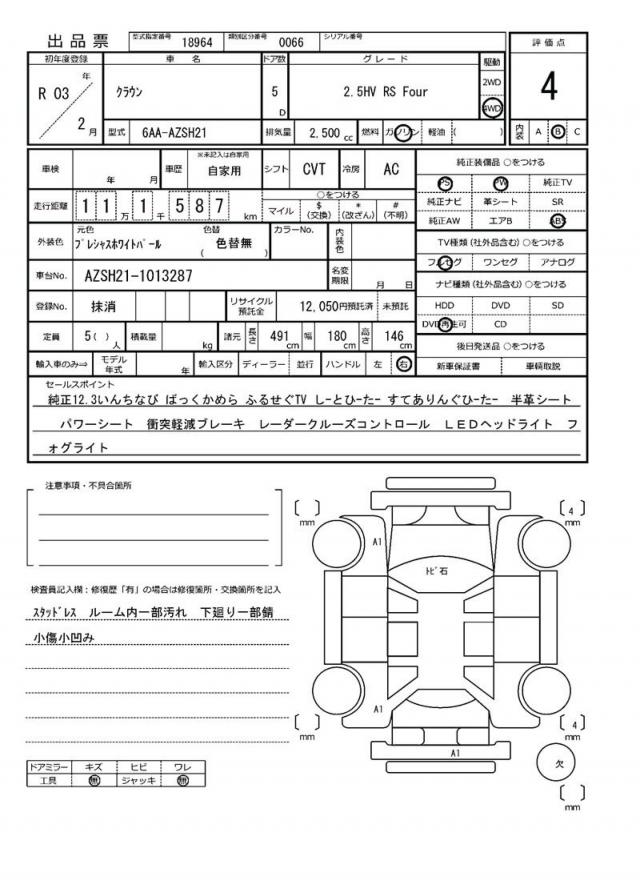 出品票
型式指定番号 18964 類別区分番号 0066 シリアル番号
初年度登録 車名 ドア数 グレード 駆動 評価点
R 03 年 2 月
クラウン 5 D 2.5HV RS Four 2WD 4WD
4
型式 6AA-AZSH21 排気量 2,500 cc 燃料 ガソリン 軽油 ( ) 内装 A B C
車検 年 月 車歴 ※未記入は自家用 自家用 シフト CVT 冷房 AC
走行距離 1 1 万 1 千 5 8 7 km
○をつける
マイル $ (交換) * (改ざん) # (不明)
外装色 元色 プレシャスホワイトパール 色替 ( 色替無 ) カラーNo. 内装色
車台No. AZSH21-1013287 名変期限 月 日
登録No. 抹消 リサイクル預託金 12,050円預託済 未預託
定員 5( ) 人 積載量 kg 諸元 長さ 491 cm 幅 180 cm 高さ 146 cm
輸入車のみ⇒ モデル年式 年 輸入区分 ディーラー 並行 ハンドル 左 右
純正装備品 ○をつける
PS PW 純正TV
純正ナビ 革シート SR
純正AW エアB ABS
TV種類(社外品含む) ○をつける
フルセグ ワンセグ アナログ
ナビ種類(社外品含む) ○をつける
HDD DVD SD
DVD再生可 CD
後日発送品 ○をつける
新車保証書 車輌取説
セールスポイント
純正12.3いんちなび ばっくかめら ふるせぐTV しーとひーたー すてありんぐひーたー 半革シート
パワーシート 衝突軽減ブレーキ レーダークルーズコントロール LEDヘッドライト フ
ォグライト
注意事項・不具合箇所
検査員記入欄:修復歴「有」の場合は修復箇所・交換箇所を記入
スタッドレス ルーム内一部汚れ 下廻り一部錆
小傷小凹み
ドアミラー キズ ヒビ ワレ
工具 無 ジャッキ 無
[ ] mm
[ 4 ] mm
A1
トビ石
A1
[ ] mm
[ 4 ] mm
A1
欠
[ ] mm